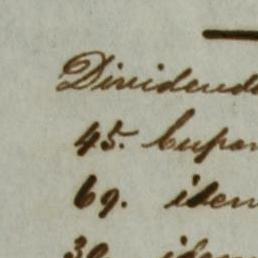 Dividendo
45. Cupon
69. idem
30. idem